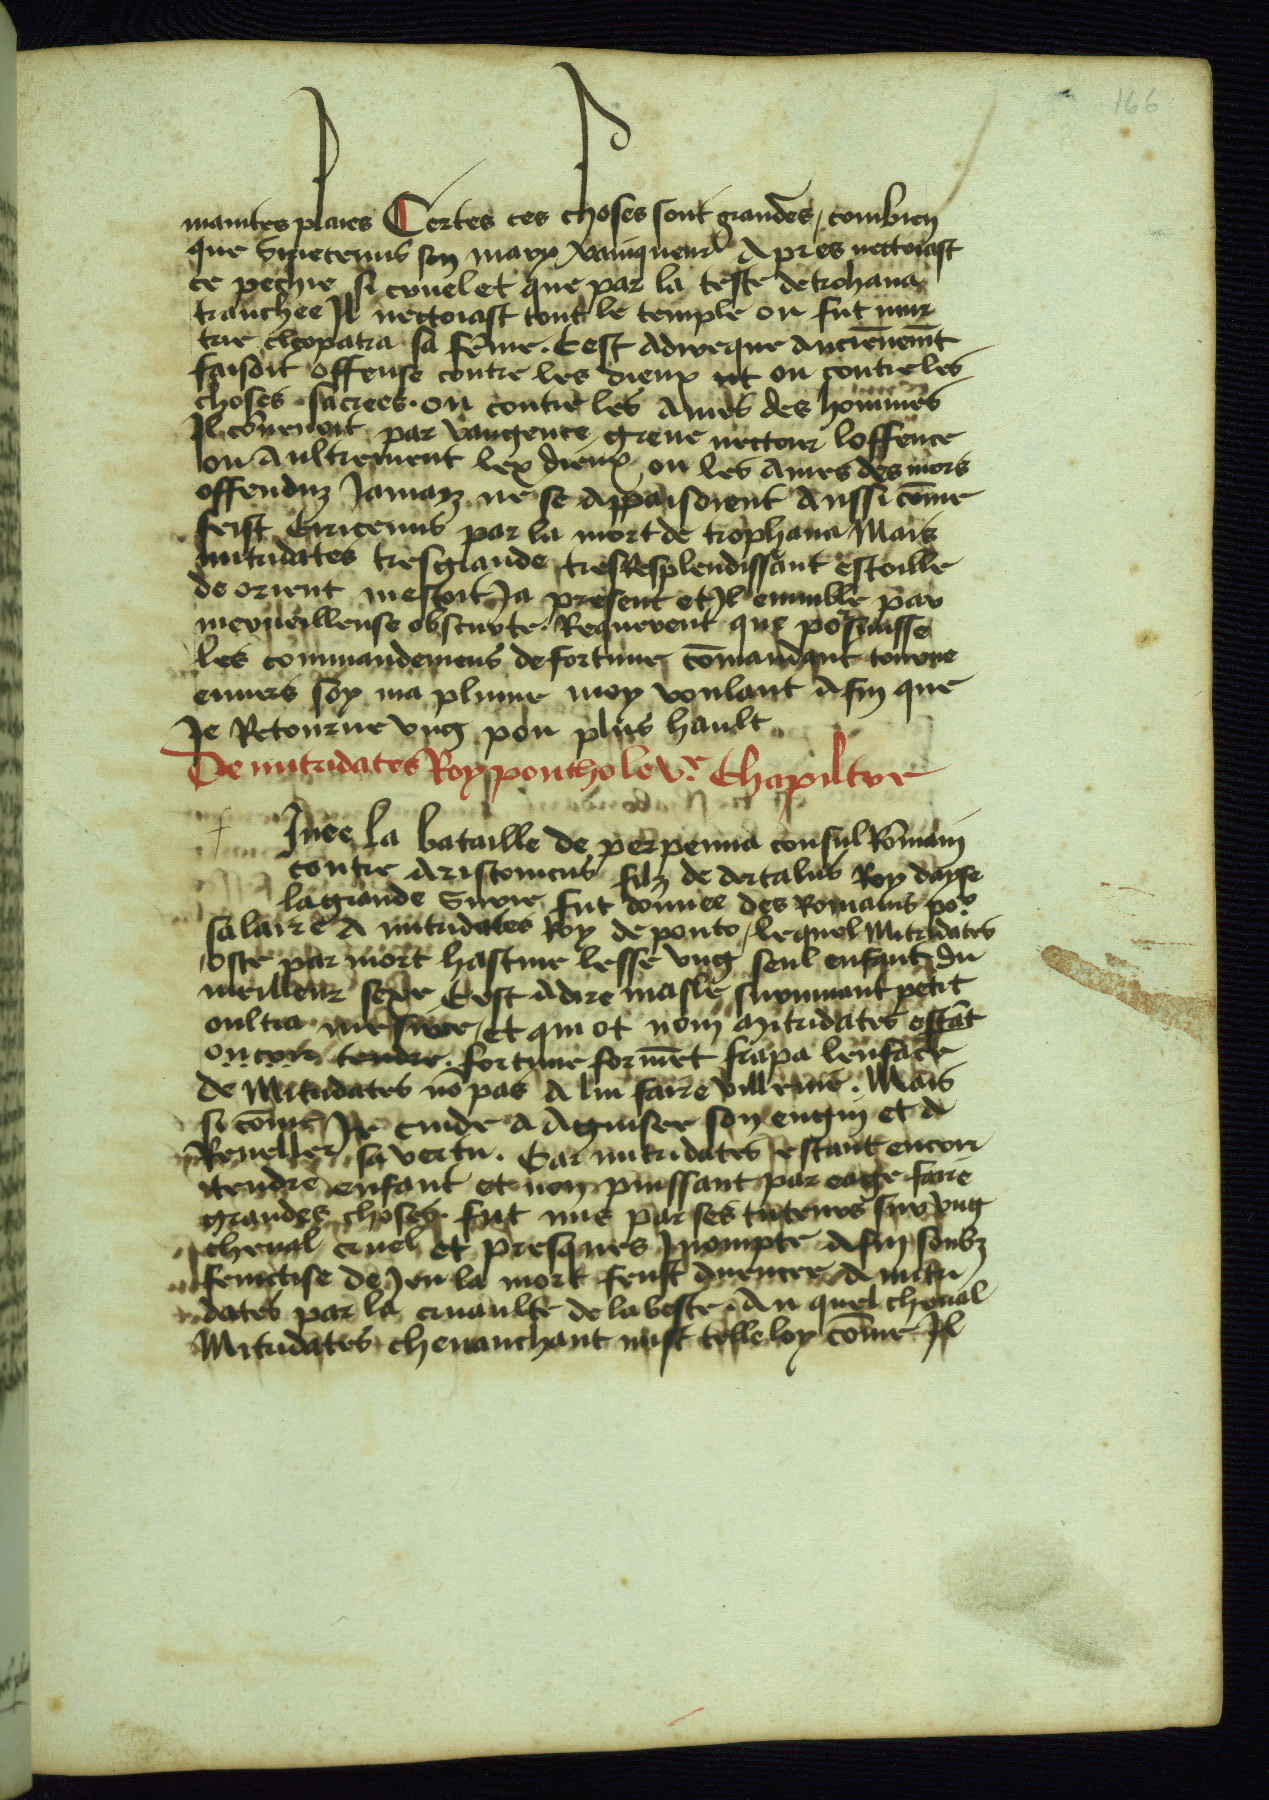 166
maintes plaies Certes ces choses sont grandes / combien
que son mary vainqueur Apres nettoiast
ce pechie si cruel et que par la teste de trohana
tranchee Il nettoiast tout le temple ou fut mur
trie cleopatra sa fe͞me . Cest Adire que Anciene͞m͞t
faisoit offense contre les dieux ut ou contre les
choses sacrees . ou contre les Ames des hommes
Il co͞uenoit par vangence greue nettoier loffence
ou Aultrement lex dieux ou les Ames des mors
offenduz Jamaiz ne se Appaisoient Aussi co͞me
feist par la mort de trophana Mais
mitridates tresgrande tresResplendissant estoille
de orient mestoit Ja present et Il ennuble par
merueilleuse obscurte . Requerent que
les commandemens de fortune co͞mandant tourne
enuers soy ma plume moy voulant Afin que
Je Retourne vng pou plus hault
De mitridates Roy pontho le v.e Chapiltre
Inee la bataille de perpenna consul Ro͞main
contre Aristonicus filz de dertalus Roy dayse
la grande Surie fut donnee des Romains po͞r
salaire A mitridates Roy de ponto / lequel Mitridates
oste par mort hastiue lesse vng seul enfant du
meilleur sexe Cest Adire masle suruiuant petit
oultra et qui ot nom mitridates esta͞t
oncor tendre . fortune forme͞t frapa lenfance
de Mitridates no͞ pas A lui faire villenie . Mais
si co͞me Je cuide A Aguiser son engin et A
Reueller sa vertu . Car mitridates estant encor
tendre enfant et non puissant par eage faire
grandes choses . fut mis par ses tuteurs sur vng
cheual cruel et presques Inompte Afin soubz
feinctise de Jeu la mort feust Auencee A mitri
dates par la cruaulte de la beste . Au quel cheual
Mitridates cheuauchant mist telle loy co͞me Il